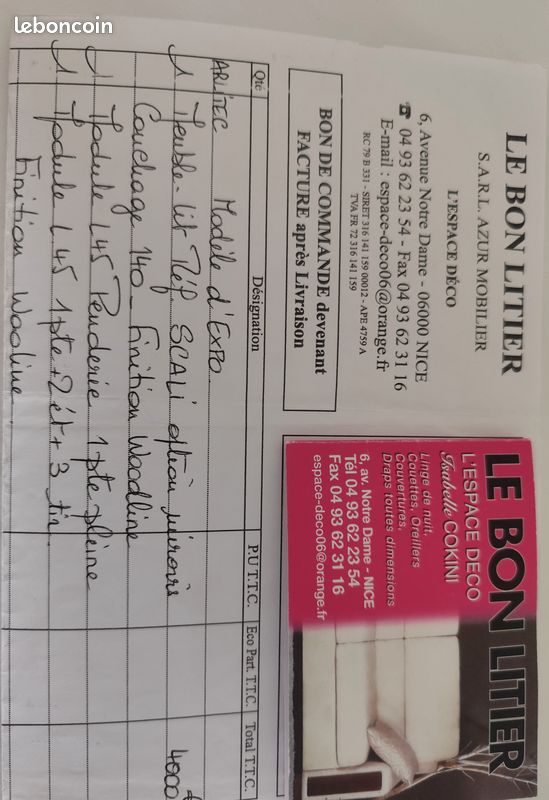 leboncoin
LE BON LITIER
S.A.R.L. AZUR MOBILIER
L'ESPACE DÉCO
6, Avenue Notre Dame - 06000 NICE
☎ 04 93 62 23 54 - Fax 04 93 62 31 16
E-mail : espace-deco06@orange.fr
RC 79 B 331 - SIRET 316 141 159 00012 - APE 4759 A
TVA FR 72 316 141 159
BON DE COMMANDE devenant
FACTURE après Livraison
LE BON LITIER
L'ESPACE DECO
Isabelle COKINI
Linge de nuit,
Couettes, Oreillers
Couvertures,
Draps toutes dimensions
6, av. Notre Dame - NICE
Tél 04 93 62 23 54
Fax 04 93 62 31 16
espace-deco06@orange.fr
Qté Désignation P.U T.T.C. Eco Part. T.T.C. Total T.T.C.
Modèle d'Expo
1 Meuble-lit Réf. SCALI option miroirs 4000
Couchage 140 - Finition Woodline
1 Module L 45 Penderie 1 pte pleine
1 Module L 45 1 pte + 2 ét + 3 tir.
Finition Wooline